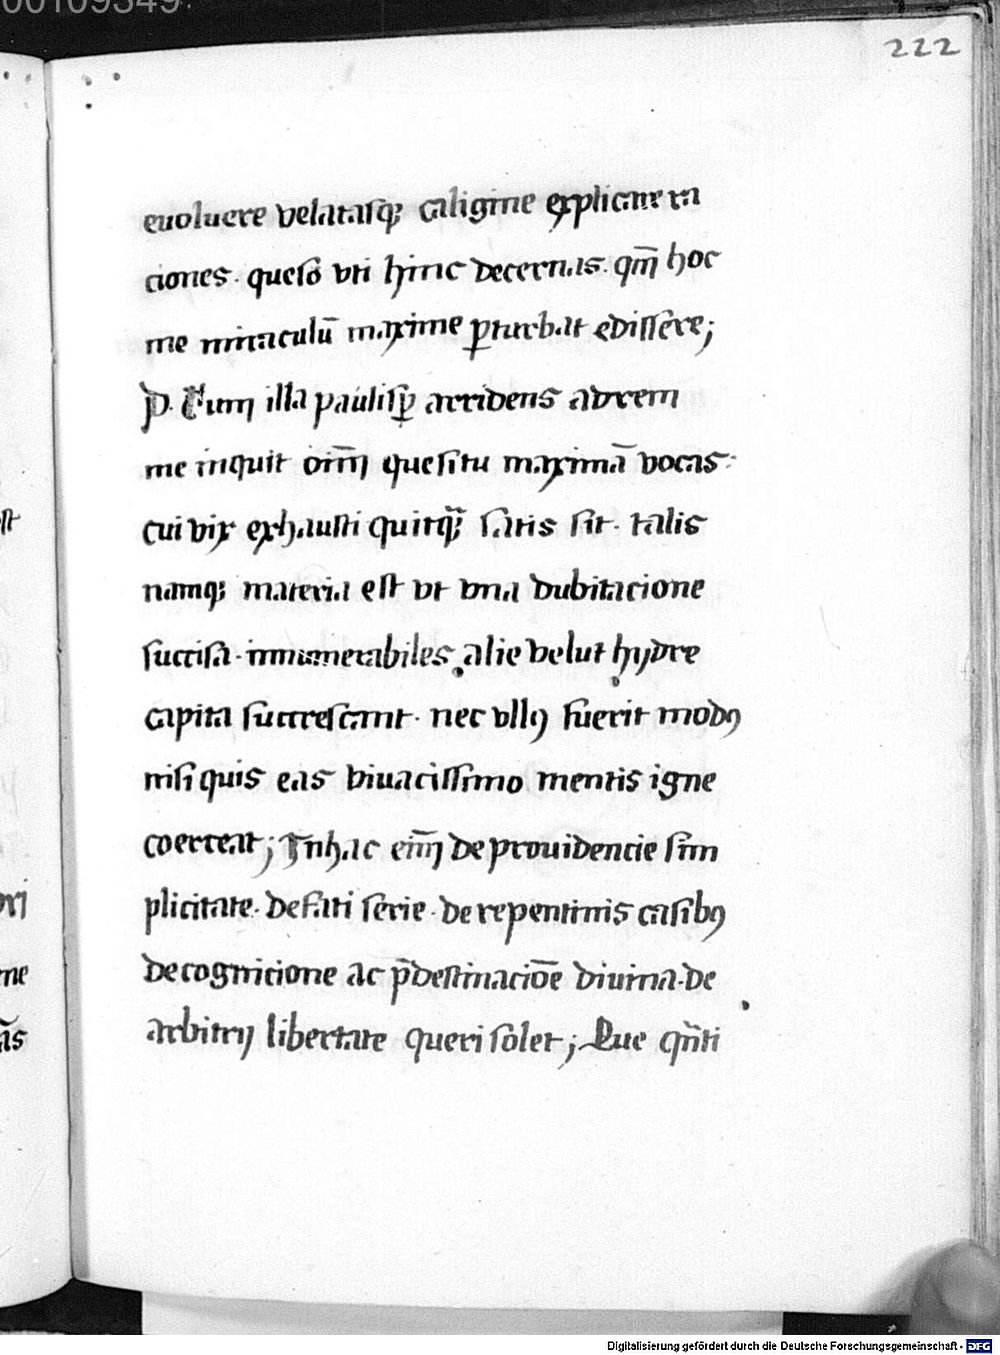 00109349
222
euoluere velatasq; caligine explicare ra
ciones · queso vti hinc decernas · qm̄ hoc
me miraculū maxime ꝑturbat edissere;
P. Tum illa paulisꝑ arridens ad rem
me inquit om̄ quesitu maximā vocas:
cui vix exhausti quitq̄; satis sit · talis
namq; materia est vt vna dubitacione
succisa · innumerabiles alie velut hydre
capita succrescant · nec vllꝰ fuerit modꝰ
nisi quis eas viuacissimo mentis igne
coerceat; In hac eim̄ de prouidencie sim
plicitate · de fati serie · de repentinis casibꝫ
de cognicione ac p̄destinacioē diuina · de
arbitrij libertate queri solet; Que qn̄ti
st
me
Digitalisierung gefördert durch die Deutsche Forschungsgemeinschaft - DFG